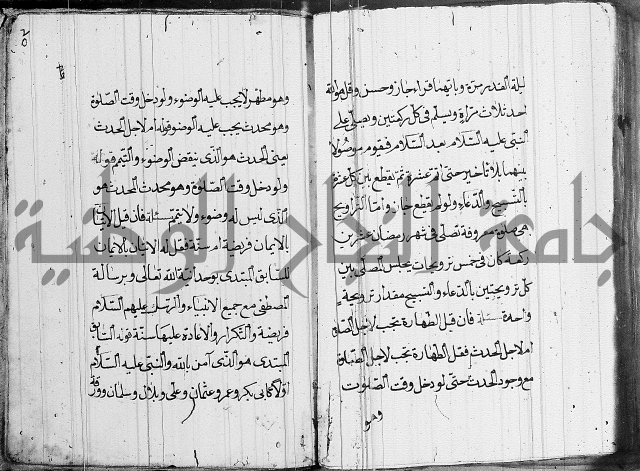 ليلة القدر مرة وبايهما قراء جاز وحسن وقل هو الله
احد ثلاث مرات ويسلم في كل ركعتين ويصلي على
النبي عليه السلام بعد السلام فيقوم موصولا
بينهما بلا تاخير حتى اتم عشرة ثم يقطع بين كل عشرة
بالتسبيح والدعاء ولو لم يقطع جاز واما التراويح
هي صلوة معروفة تصلى في شهر رمضان عشرين
ركعة كان في خمس ترويحات يجلس المصلي بين
كل ترويحتين بالدعاء والتسبيح مقدار ترويحة
واحدة مسئلة فان قيل الطهارة تجب لاجل الصلوة
ام لاجل الحدث فقل الطهارة تجب لاجل الصلوة
مع وجود الحدث حتى لو دخل وقت الصلوت
وهو
وهو مطهر لا يجب عليه الوضوء ولو دخل وقت الصلوة
وهو محدث يجب عليه الوضوء قوله ام لاجل الحدث
يعني الحدث هو الذي ينقض الوضوء والتيمم قوله
ولو دخل وقت الصلوة وهو محدث المحدث هو
الذي ليس له وضوء ولا يتمم مسئلة فان قيل الاتيان
بالايمان فريضة ام سنة فقل له الاتيان بالايمان
للسابق المبتدي بوحدانية الله تعالى وبرسالة
المصطفى مع جميع الانبياء والرسل عليهم السلام
فريضة والتكرار والاعادة عليها سنة قوله السابق
المبتدي هو الذي آمن بالله والنبي عليه السلام
اولا كابي بكر وعمر وعثمان وعلي وبلال وسلمان وورقة
جامعة النجاح الوطنية